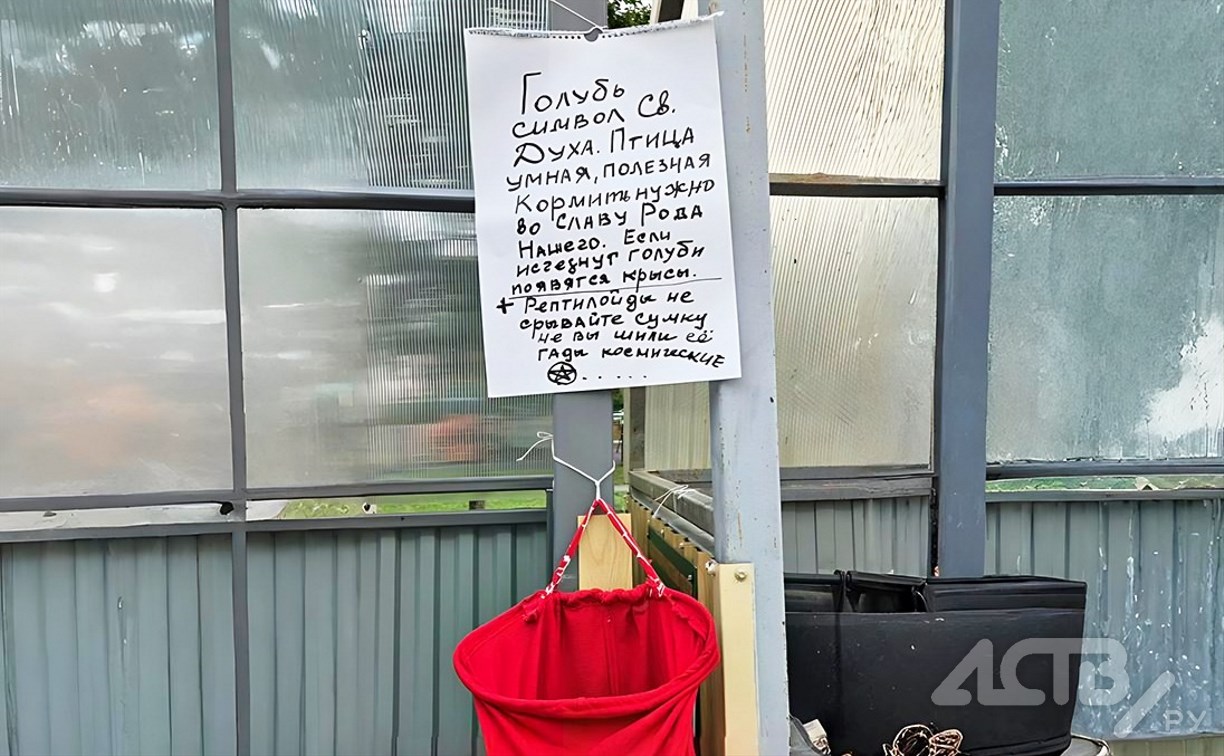 Голубь
символ Св.
Духа. Птица
умная, полезная
Кормить нужно
во Славу Рода
Нашего. Если
исчезнут голуби
появятся крысы.
+ Рептилойды не
срывайте сумку
не вы шили её
гады космические
......
АСТВ
РУ